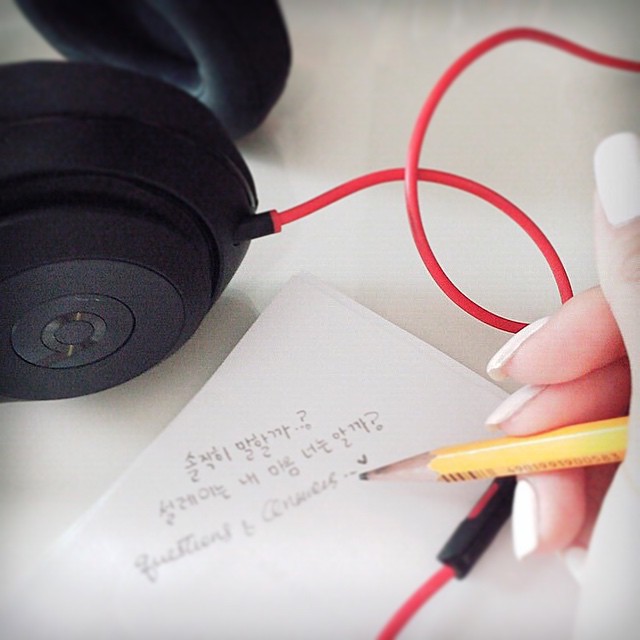 솔직히 말할까..?
설레이는 내 마음 너는 알까?
questions & answers...♥